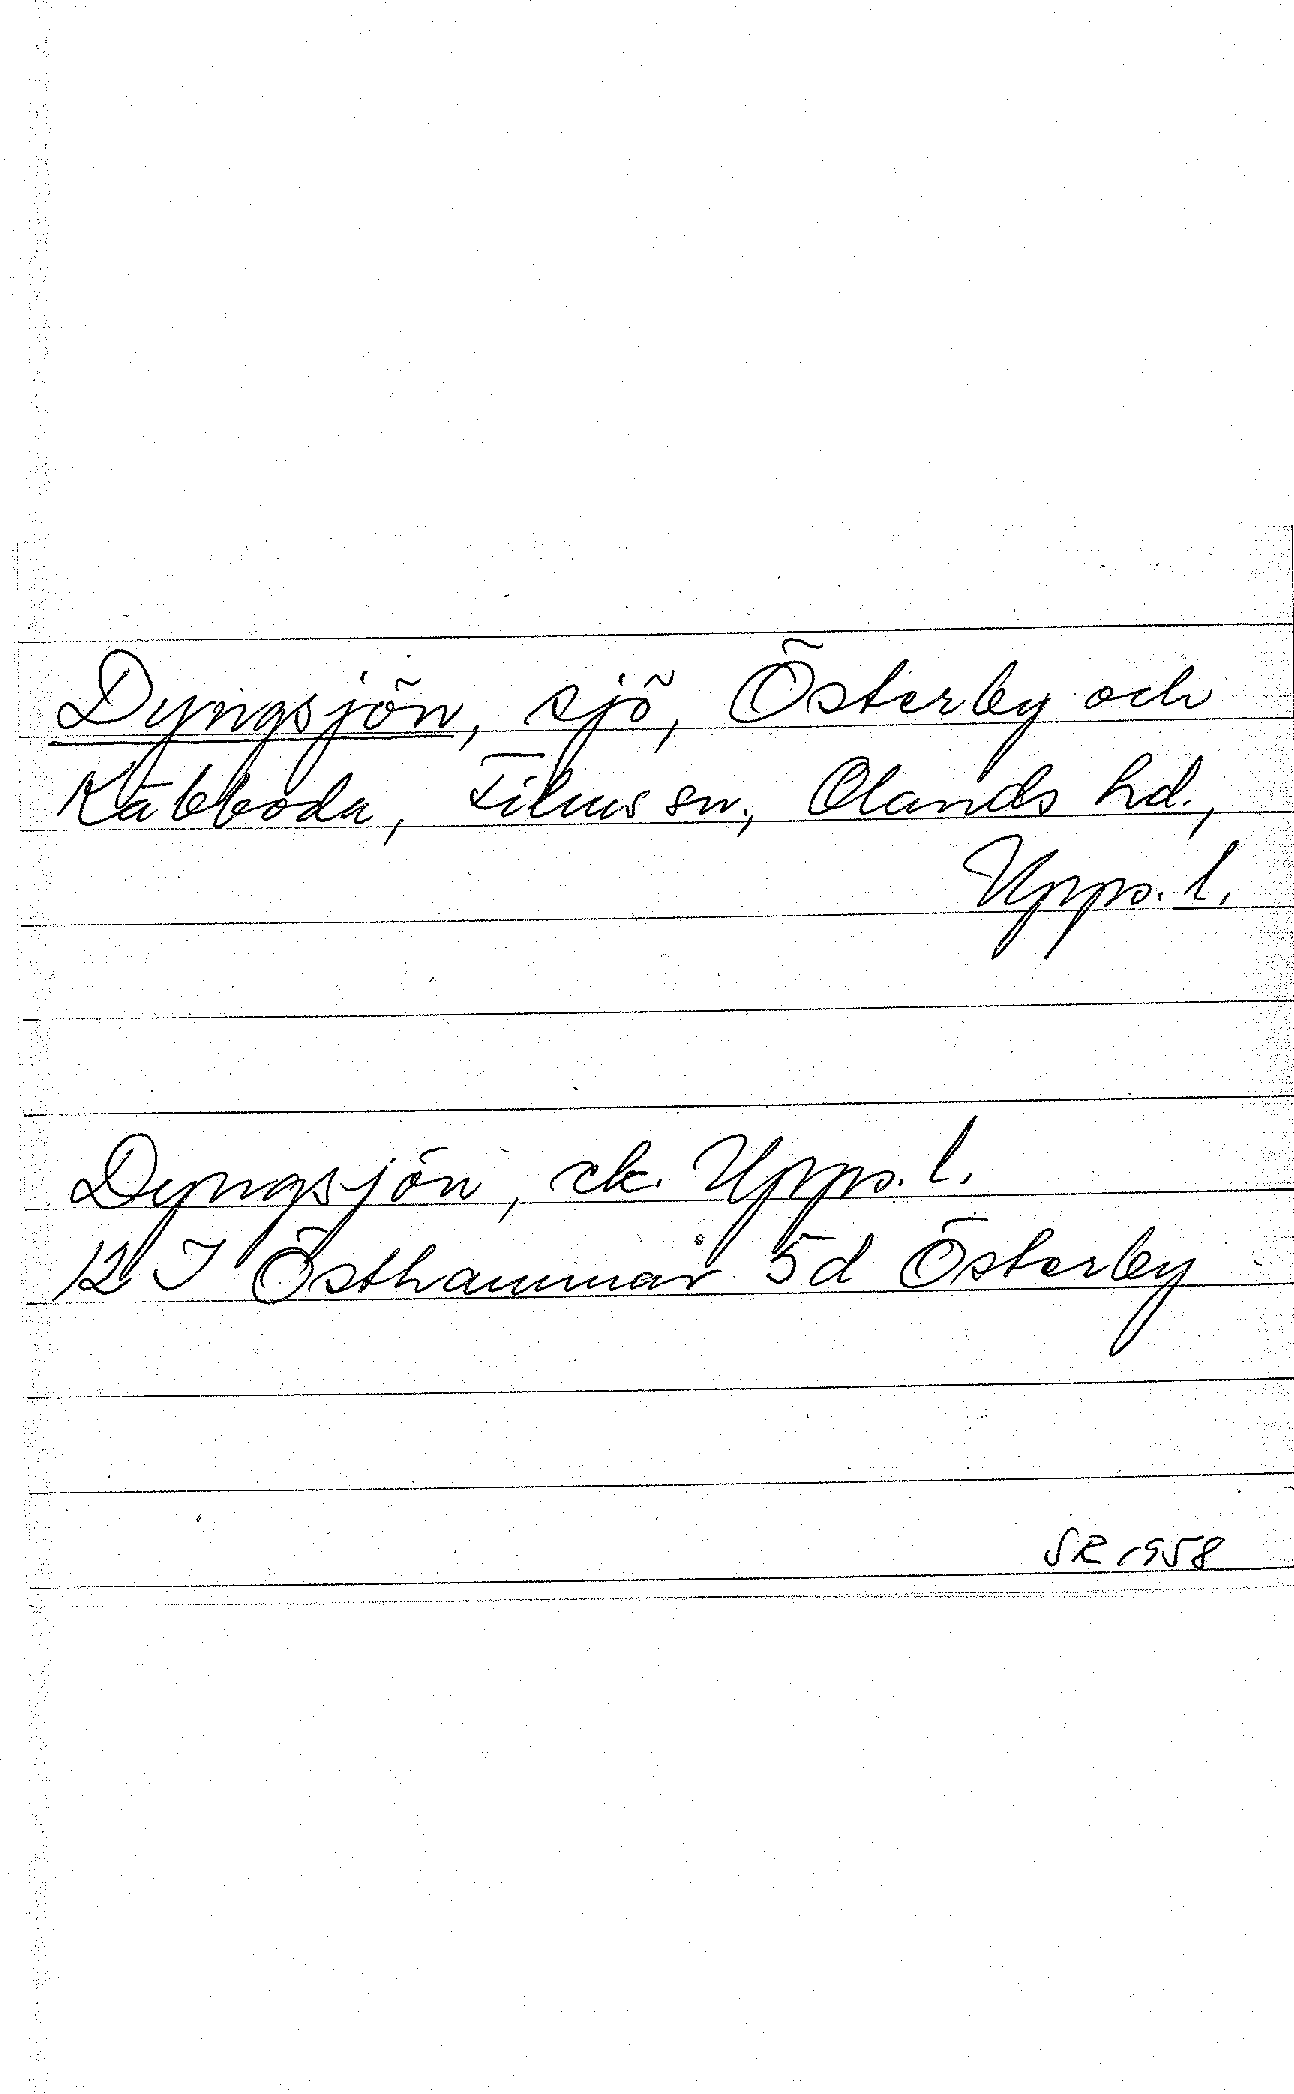 Dyngsjön, sjö, Österby och
Kåbboda, Films sn., Olands hd.,
Upps. l.
Dyngsjön, ek. Upps. l.
12 I Östhammar 5d Österby
SR 1958